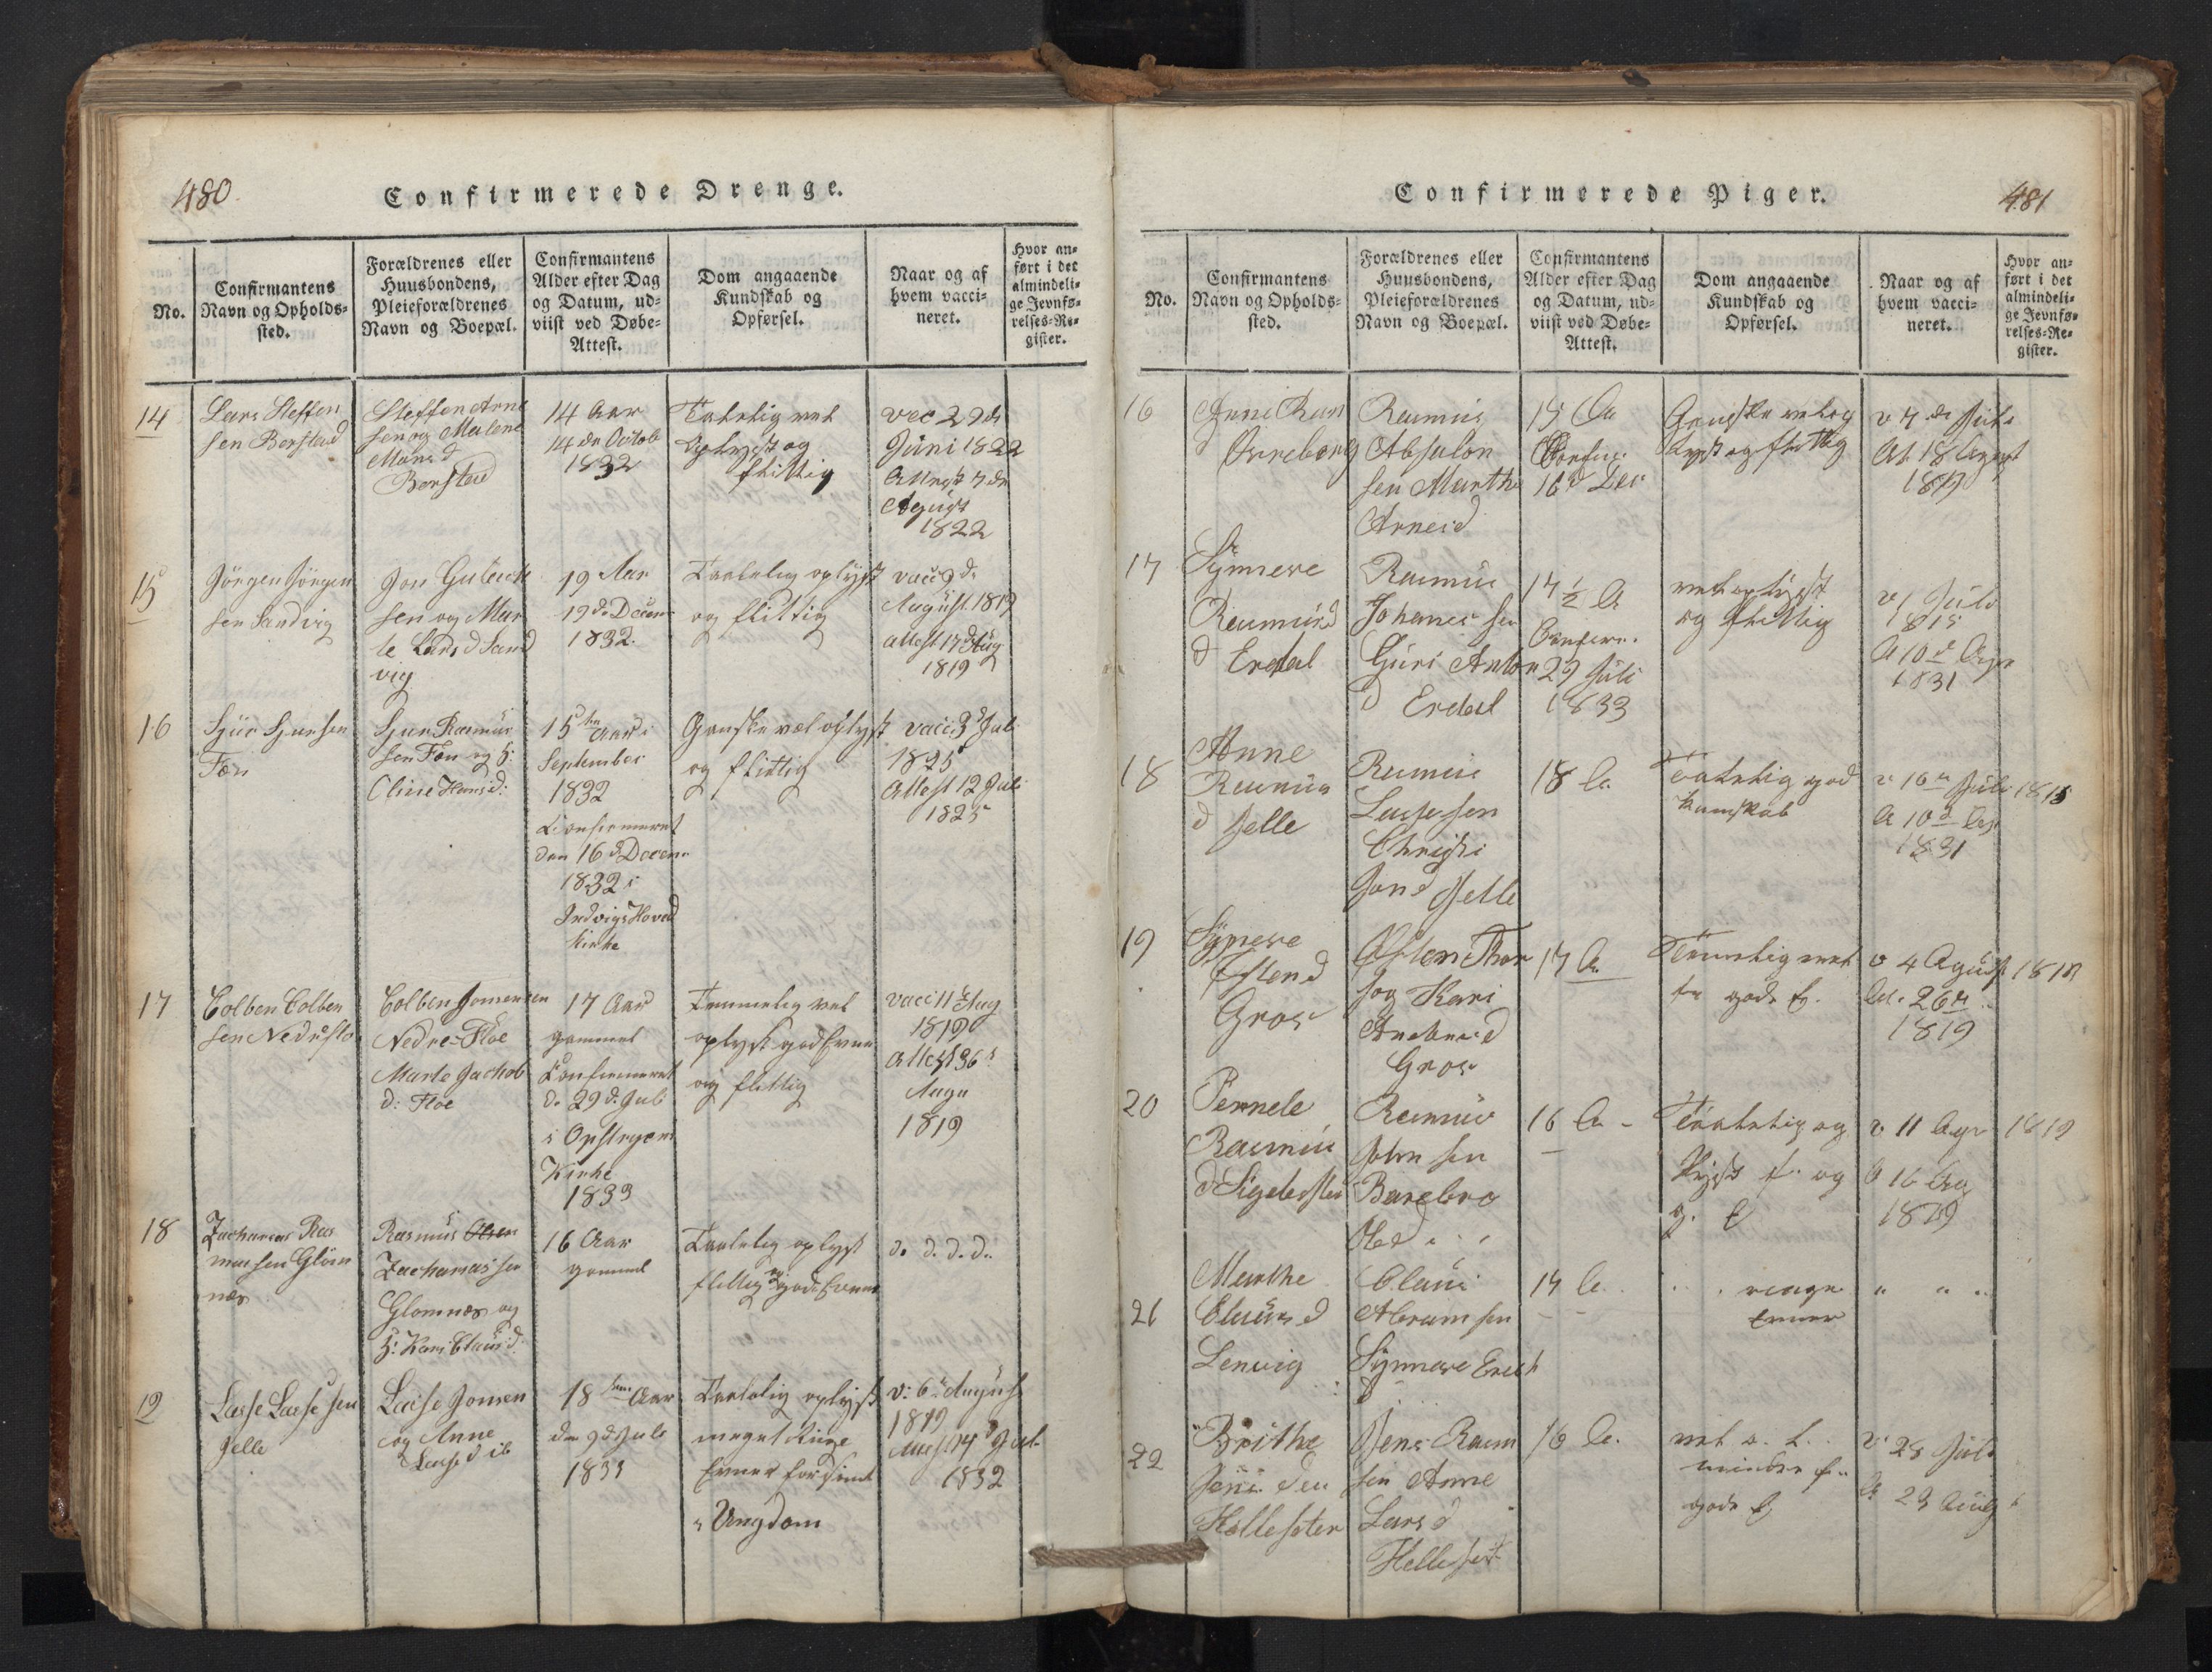 480.
Confirmerede Drenge.
No.
Confirmantens
Navn og Opholds-
sted.
Forældrenes eller
Huusbondens,
Pleieforældrenes
Navn og Boepæl.
Confirmantens
Alder efter Dag
og Datum, ud-
viist ved Døbe-
Attest.
Dom angaaende
Kundskab og
Opførsel.
Naar og af
hvem vacci-
neret.
Hvor an-
ført i det
almindeli-
ge Jevnfø-
relses-Re-
gister.
14
Lars Steffen
sen Berstad
Steffen Arne
sen og Malene
Mons d
Berstad
14 Aar
14 de Octob
1832
Taalelig vel
oplyst og
flittig
vac 29 de
Juni 1822
Attest 7 de
August
1822
15
Jörgen Jörgen
sen Sandvig
Jon Guteck
sen og Mar
te Lars d Sand
vig
19 Aar
19 de Decem
1832.
Taalelig oplyst
og flittig
vacc 9 d.
August 1819
attest 17 d Aug
1819
16
Sjur Sjursen
Fæn
Sjur Rasmus
sen Fæn og H:
Oline Hans d:
15 Aar i
September
1832
Confirmeret
den 16 d Decem
1832 i
Indvigs Hoved
Kirke
Ganske vel oplyst
og flittig
vacc 3 d Juli
1825
Attest 12 Juli
1825
17
Colben Colben
sen Nedrefloe
Colben Jonsensen
Nedre-Floe
Marte Jachob
d: Floe
17 Aar
gammel
Confirmeret
d. 29 d. Juli
i Opstryens
Kirke
1833
Temmelig vel
oplyst god Evne
og flittig
vacc 11 Aug
1819
Attest 36
Augu
1819
18
Zacharias Ras
mussen Glom
næs
Rasmus Olsen
Zachariassen
Glomnæs og
H: Kari Claus d:
16 Aar
gammel
Taalelig oplyst
flittig og gode Evner
d. d. d. d.
19
Lasse Lasse sen
Jelle
Lasse Jonsen
og Anne
Lasse d ib
18 Aar
den 9 d Juli
1833
Taalelig oplyst
meget ringe
Evner forsömt
i Ungdom
v: 6 August
1819
Attest 4 d Juli
1832
Confirmerede Piger.
481
No.
Confirmantens
Navn og Opholds-
sted.
Forældrenes eller
Huusbondens,
Pleieforældrenes
Navn og Boepæl.
Confirmantens
Alder efter Dag
og Datum, ud-
viist ved Døbe-
Attest.
Dom angaaende
Kundskab og
Opførsel.
Naar og af
hvem vacci-
neret.
Hvor an-
ført i det
almindeli-
ge Jevnfø-
relses-Re-
gister.
16
Anne
d
Rasmus
Absalon
sen Marthe
Arnes d
15 Aa
16 d Dec
Ganske vel op
lyst og flittig
v 7 de Juli
At 18 August
1819
17
Synneve
Rasmus d
d Erdal
Rasmus
Johannes sen
Guri Anton
d Erdal
17 1/2 A
Confirm.
29 Juli
1833
vel oplyst
og flittig
v 1 Juli
1815
A 10 d Agu
1831
18
Anne
Rasmus
d Jelle
Rasmus
Lassesen
Christi
Jons d Jelle
18 A.
Taalelig god
Kundskab
v 10 Juli 1815
A 10 d Aug
1831
19
Synneve
Østen d
Gros
Østen Thor
s og Kari
Gros
17 A.
Temmelig vel
gode E.
v 4 August 1818
At. 26
1819
20
Pernele
Rasmus
d
Rasmus
John sen
16 A -
Taalelig op
lyst f. og
g. E
v 11 Agu 1819
A 16 Aug
1819
21
Marthe
Claus d
Lenvig
Claus
Abram sen
Synneve Erich
d
17 A.
ringe
Evner
" " "
22
Brithe
Hellesæter
Jens Rasm
sen Anne
Lars d
Hellesæt
16 A.
vel o. l.
mindre f.
gode E
v 28 Juli
A 29 Aug